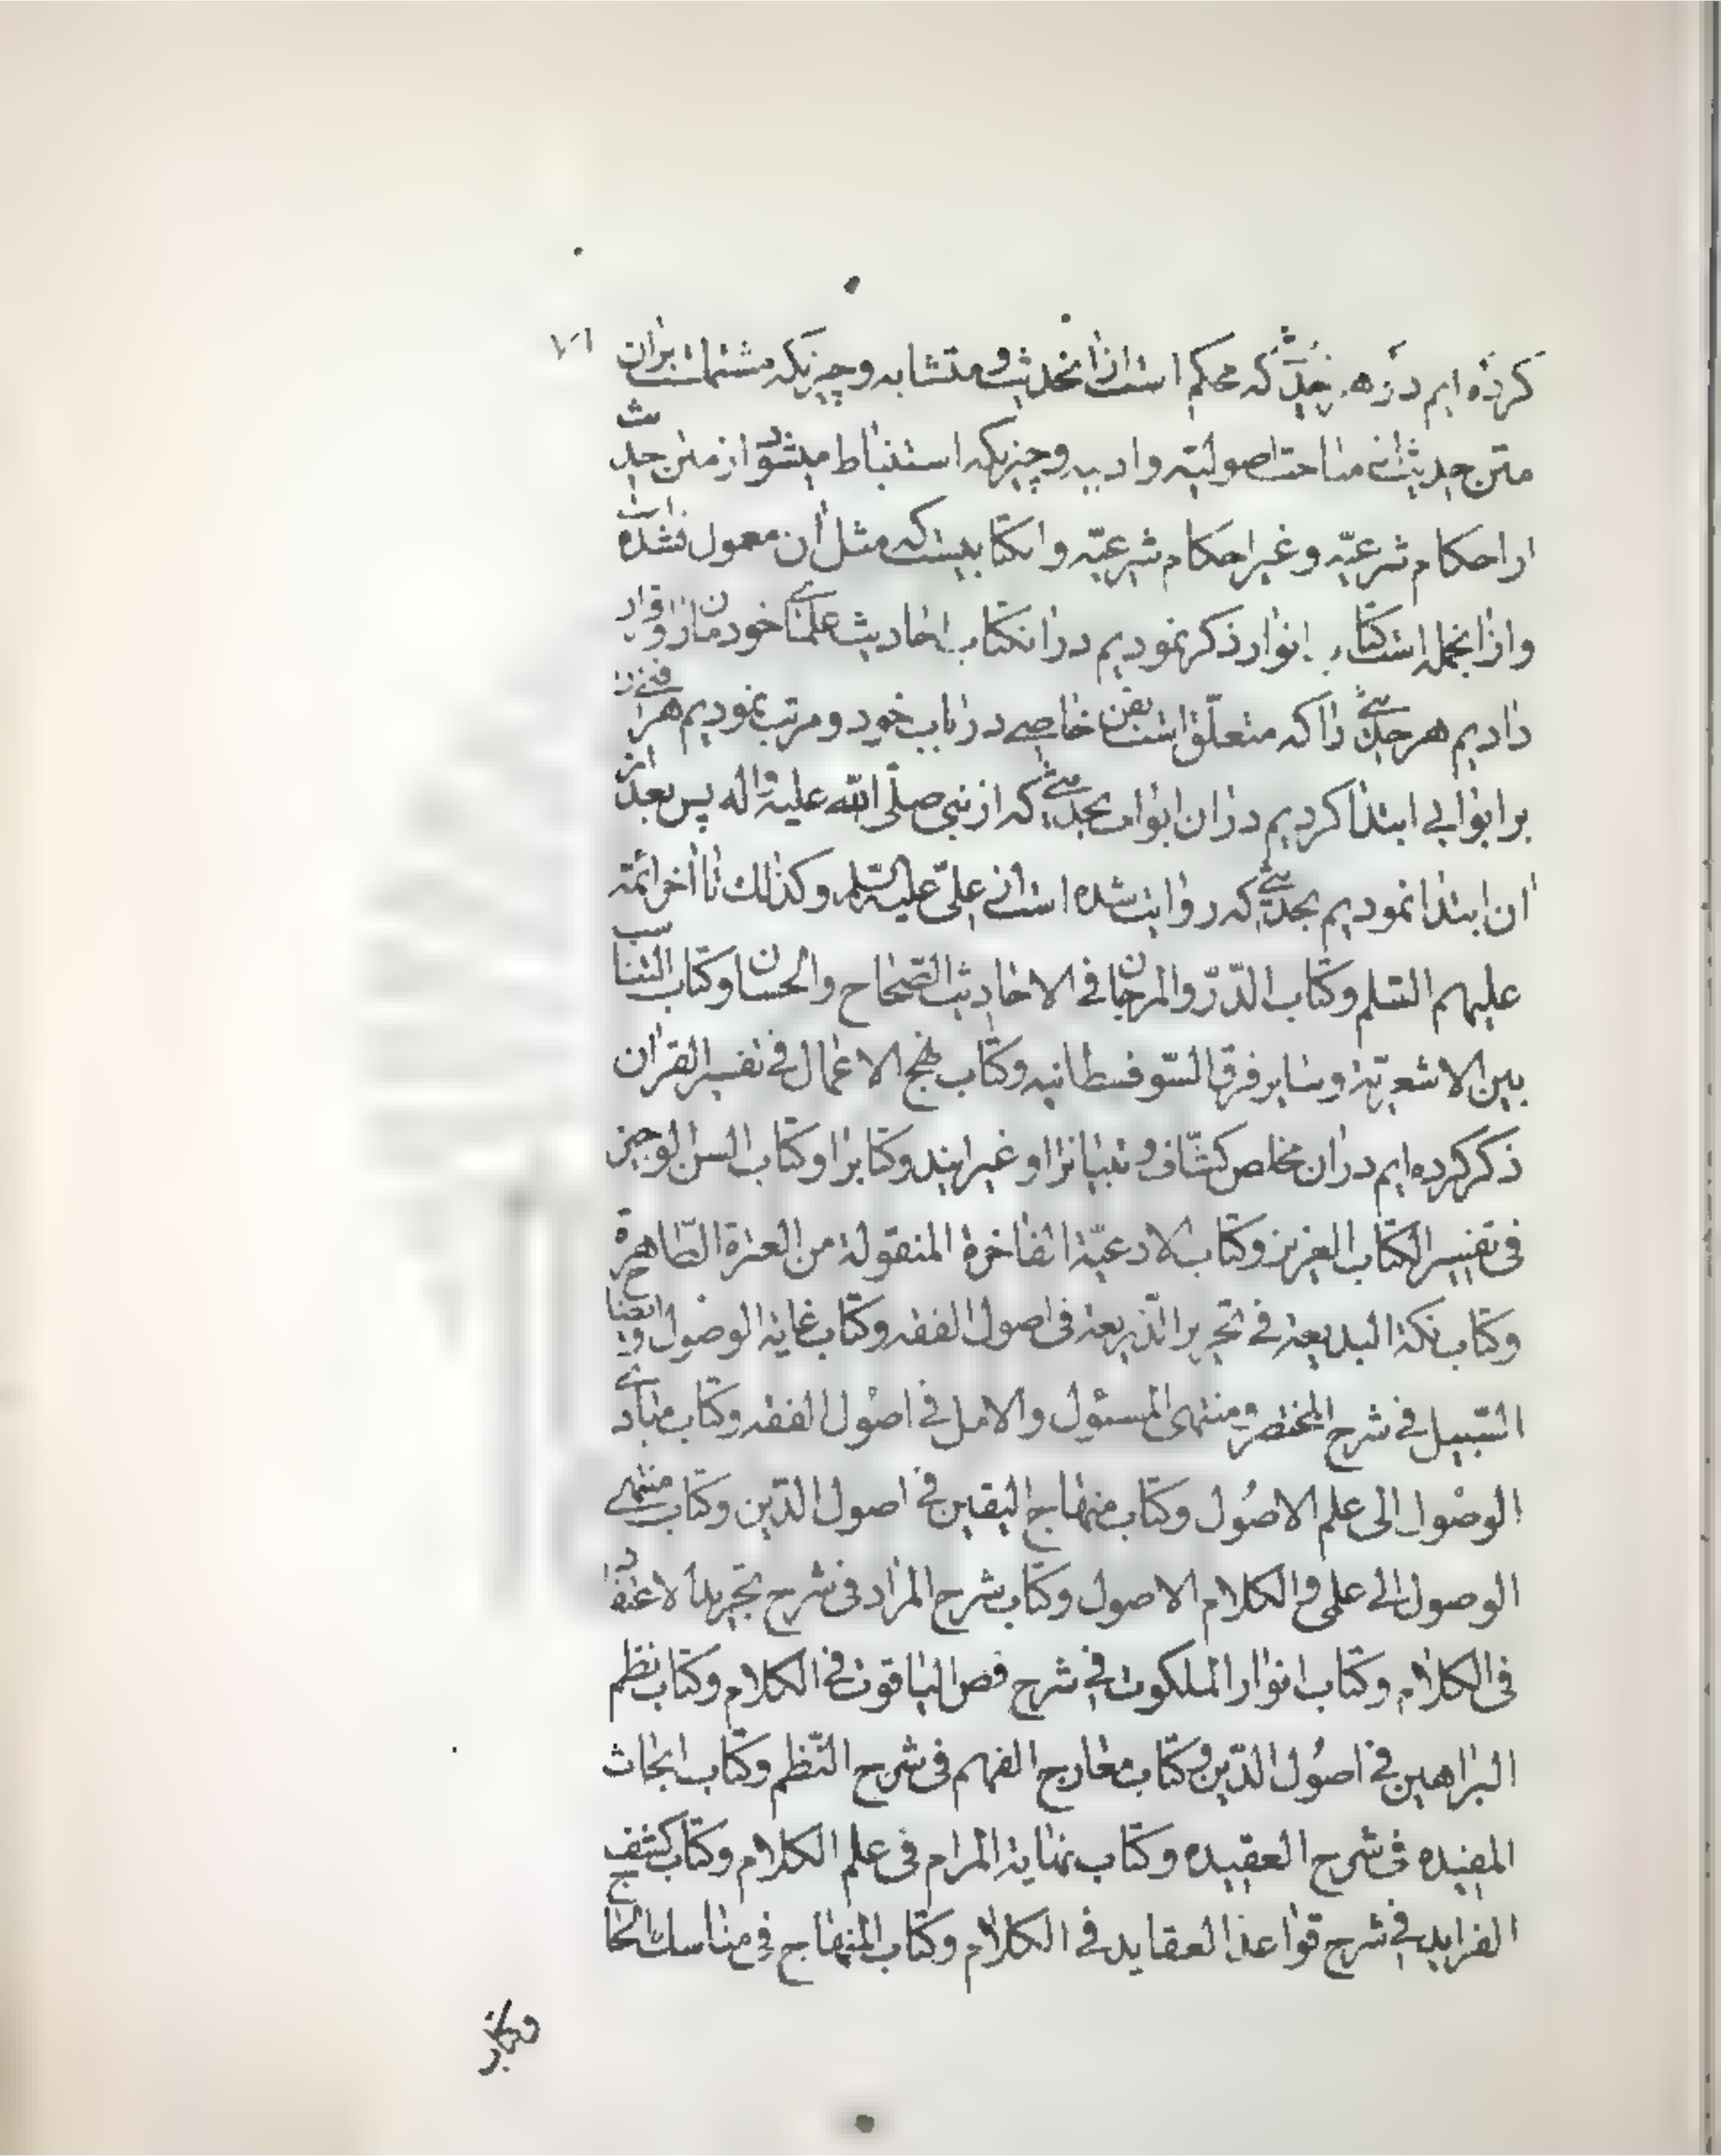 کرده ایم در هر حدیثی که محکم است از انحدیث و متشابه و چیزیکه مشتملست بران
متن حدیث از مباحث اصولیه و ادبیه و چیزیکه استنباط میشود از متن حدیث
از احکام شرعیّه و غیر احکام شرعیّه و انکتابیست که مثل آن معمول نشده است
و از انجمله است کتاب انوار ذکر نمودیم در انکتاب احادیث علمای خود مانرا و قرار
دادیم هر حدیثی را که متعلّق است بفن خاصے در باب خود و مرتب نمودیم هر فنے را
بر ابوابی ابتدا کردیم دران ابواب بحدیثی که از نبی صلّی الله علیه و اله پس بعد از
ان ابتدا نمودیم بحدیثی که روایت شده است از علیّ علیه السّلم و کذلك تا اخر ائمّه
علیهم السّلم و کتاب الدّرّ و المرجان فی الاحادیث الصّحاح و الحسان و کتاب التناسب
بین الاشعریّة و سایر فرق السّوفسطانیه و کتاب نهج الاعمال فی تفسیر القران
ذکر کرده ایم دران مخلص کشّاف و تبیانرا و غیر ایندو کتابرا و کتاب السرّ الوجیز
فی تفسیر الکتاب العزیز و کتاب الادعیّة الفاخرة المنقولة من العترة الطّاهرة
و کتاب نکة البدیعة فی تحریر الذّریعة فی اصول الفقه و کتاب غایة الوصول و ایضاح
السّبیل فی شرح المختصر و منتهی المسئول و الامل فی اصول الفقه و کتاب مبادے
الوصُول الی علم الاصُول و کتاب منهاج الیقین فی اصول الدّین و کتاب منتهی
الوصول الی علمی و الکلام الاصول و کتاب شرح المراد فی شرح تجرید الاعتقاد
فی الکلام و کتاب انوار الملکوت فی شرح فص الیاقوت فی الکلام و کتاب نظم
البراهین فی اصُول الدّین و کتاب معارج الفهم فی شرح النّظم و کتاب ابحاث
المفیده فی شرح العقیده و کتاب نهایة المرام فی علم الکلام و کتاب کشف
الفراید فی شرح قواعد العقاید فی الکلام و کتاب المنهاج فی مناسك الحاج